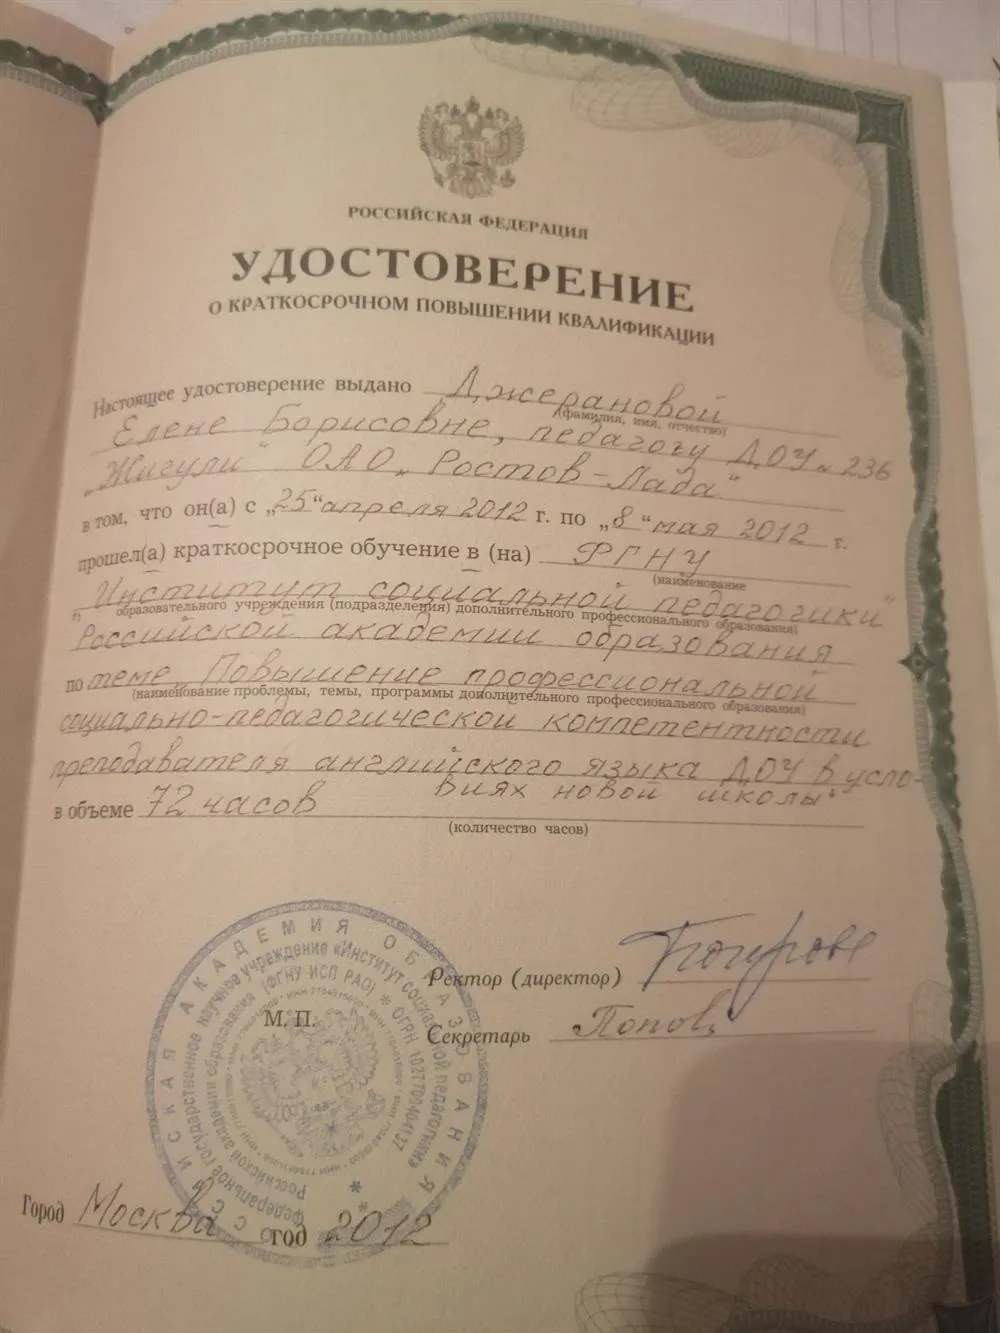 РОССИЙСКАЯ ФЕДЕРАЦИЯ
УДОСТОВЕРЕНИЕ
О КРАТКОСРОЧНОМ ПОВЫШЕНИИ КВАЛИФИКАЦИИ
Настоящее удостоверение выдано Джерановой
(фамилия, имя, отчество)
Елене Борисовне, педагогу ДОУ № 236
„Жигули" ОАО „Ростов-Лада"
в том, что он(а) с „25“ апреля 2012 г. по „8“ мая 2012 г.
прошел(а) краткосрочное обучение в (на) ФГНУ
(наименование
„Институт социальной педагогики"
образовательного учреждения (подразделения) дополнительного профессионального образования)
Российской академии образования
по теме „Повышение профессиональной
(наименование проблемы, темы, программы дополнительного профессионального образования)
социально-педагогической компетентности
преподавателя английского языка ДОУ в усло-
виях новой школы"
в объеме 72 часов
(количество часов)
РОССИЙСКАЯ АКАДЕМИЯ ОБРАЗОВАНИЯ
Федеральное государственное научное учреждение «Институт социальной педагогики»
Российской академии образования (ФГНУ ИСП РАО) * ОГРН 1027700404137
М. П.
Ректор (директор)
Секретарь Попов
Город Москва год 2012